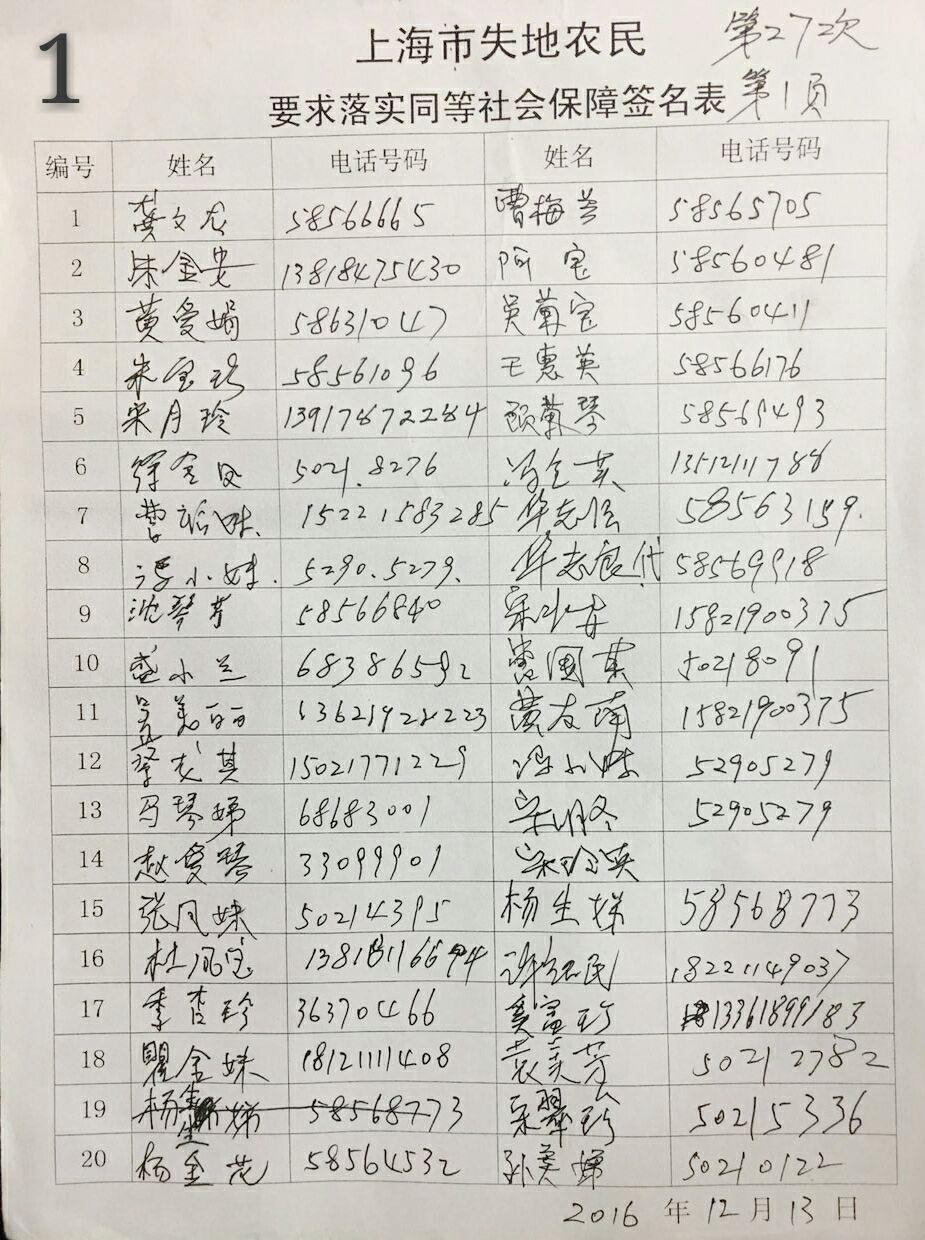 1
上海市失地农民 第27次
要求落实同等社会保障签名表 第1页
编号 姓名 电话号码 姓名 电话号码
1 龚文龙 58566665 曹梅芳 58565705
2 朱金安 13818475430 阿宝 58560481
3 黄爱娟 58631047 吴菊宝 58560411
4 朱宝珍 58561096 王惠英 58566176
5 宋月玲 13917872284 顾菊琴 58569493
6 徐金凤 5021.8276 冯全英 13512111788
7 曹招妹 15221583285 华志强 58563159.
8 谭小妹. 5290.5279. 华志良代 58569918
9 沈琴芳 58566840 宋小安 15821900375
10 盛小兰 68386592 曹国英 50218091
11 吴美丽 13621928223 黄友南 15821900375
12 蔡龙其 15021771229 冯小妹 52905279
13 马琴娣 68683001 宋明冬 52905279
14 赵爱琴 33099901 宋珍英
15 张凤妹 50214395 杨生娣 58568773
16 杜凤宝 13818116694 许红民 18221149037
17 季杏珍 36370466 龚富珍 13361899183
18 瞿金妹 18121111408 裘美芳 50212782
19 杨生娣 58568773 宋翠珍 50215336
20 杨金花 58564532 孙美娣 50210122
2016年12月13日